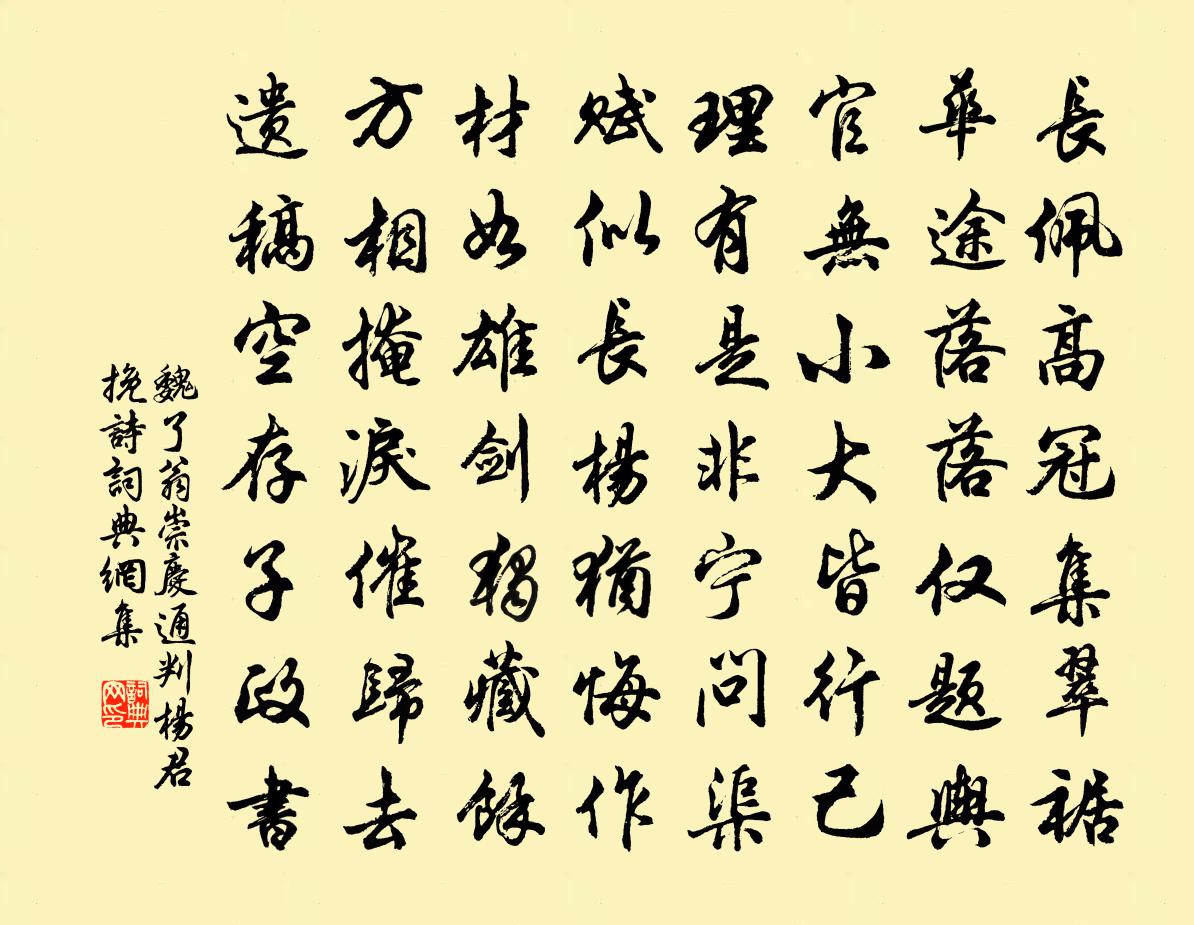 長佩高冠集翠裾
華途落落仅题輿
官無小大皆行己
理有是非宁问渠
赋似長楊猶悔作
材如雄剑獨藏餘
方相掩淚催歸去
遗稿空存子政書
魏了翁崇慶通判楊君
挽詩詞典網集
詞典
网印